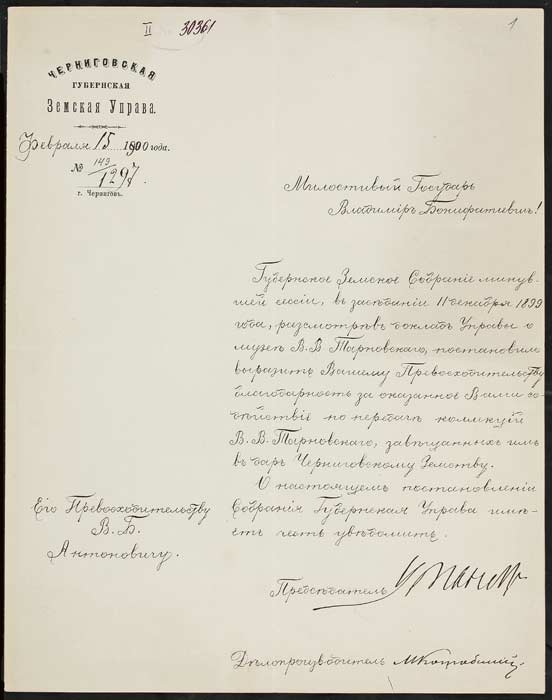 II 30361
1
ЧЕРНИГОВСКАЯ
ГУБЕРНСКАЯ
Земская Управа.
Февраля 15 1900 года.
№ 149/1297.
г. Черниговъ.
Милостивый Государь
Владиміръ Бонифатіевичъ!
Губернское Земское Собраніе минув-
шей сессіи, въ засѣданіи 11 декабря 1899
года, разсмотрѣвъ докладъ Управы о
музеѣ В. В. Тарновскаго, постановило
выразить Вашему Превосходительству
благодарность за оказанное Вами со-
дѣйствіе по передачѣ коллекцій
В. В. Тарновскаго, завѣщанныхъ имъ
въ даръ Черниговскому Земству.
О настоящемъ постановленіи
Собранія Губернская Управа имѣ-
етъ честь увѣдомить.
Его Превосходительству
В. Б.
Антоновичу.
Предсѣдатель
Дѣлопроизводитель